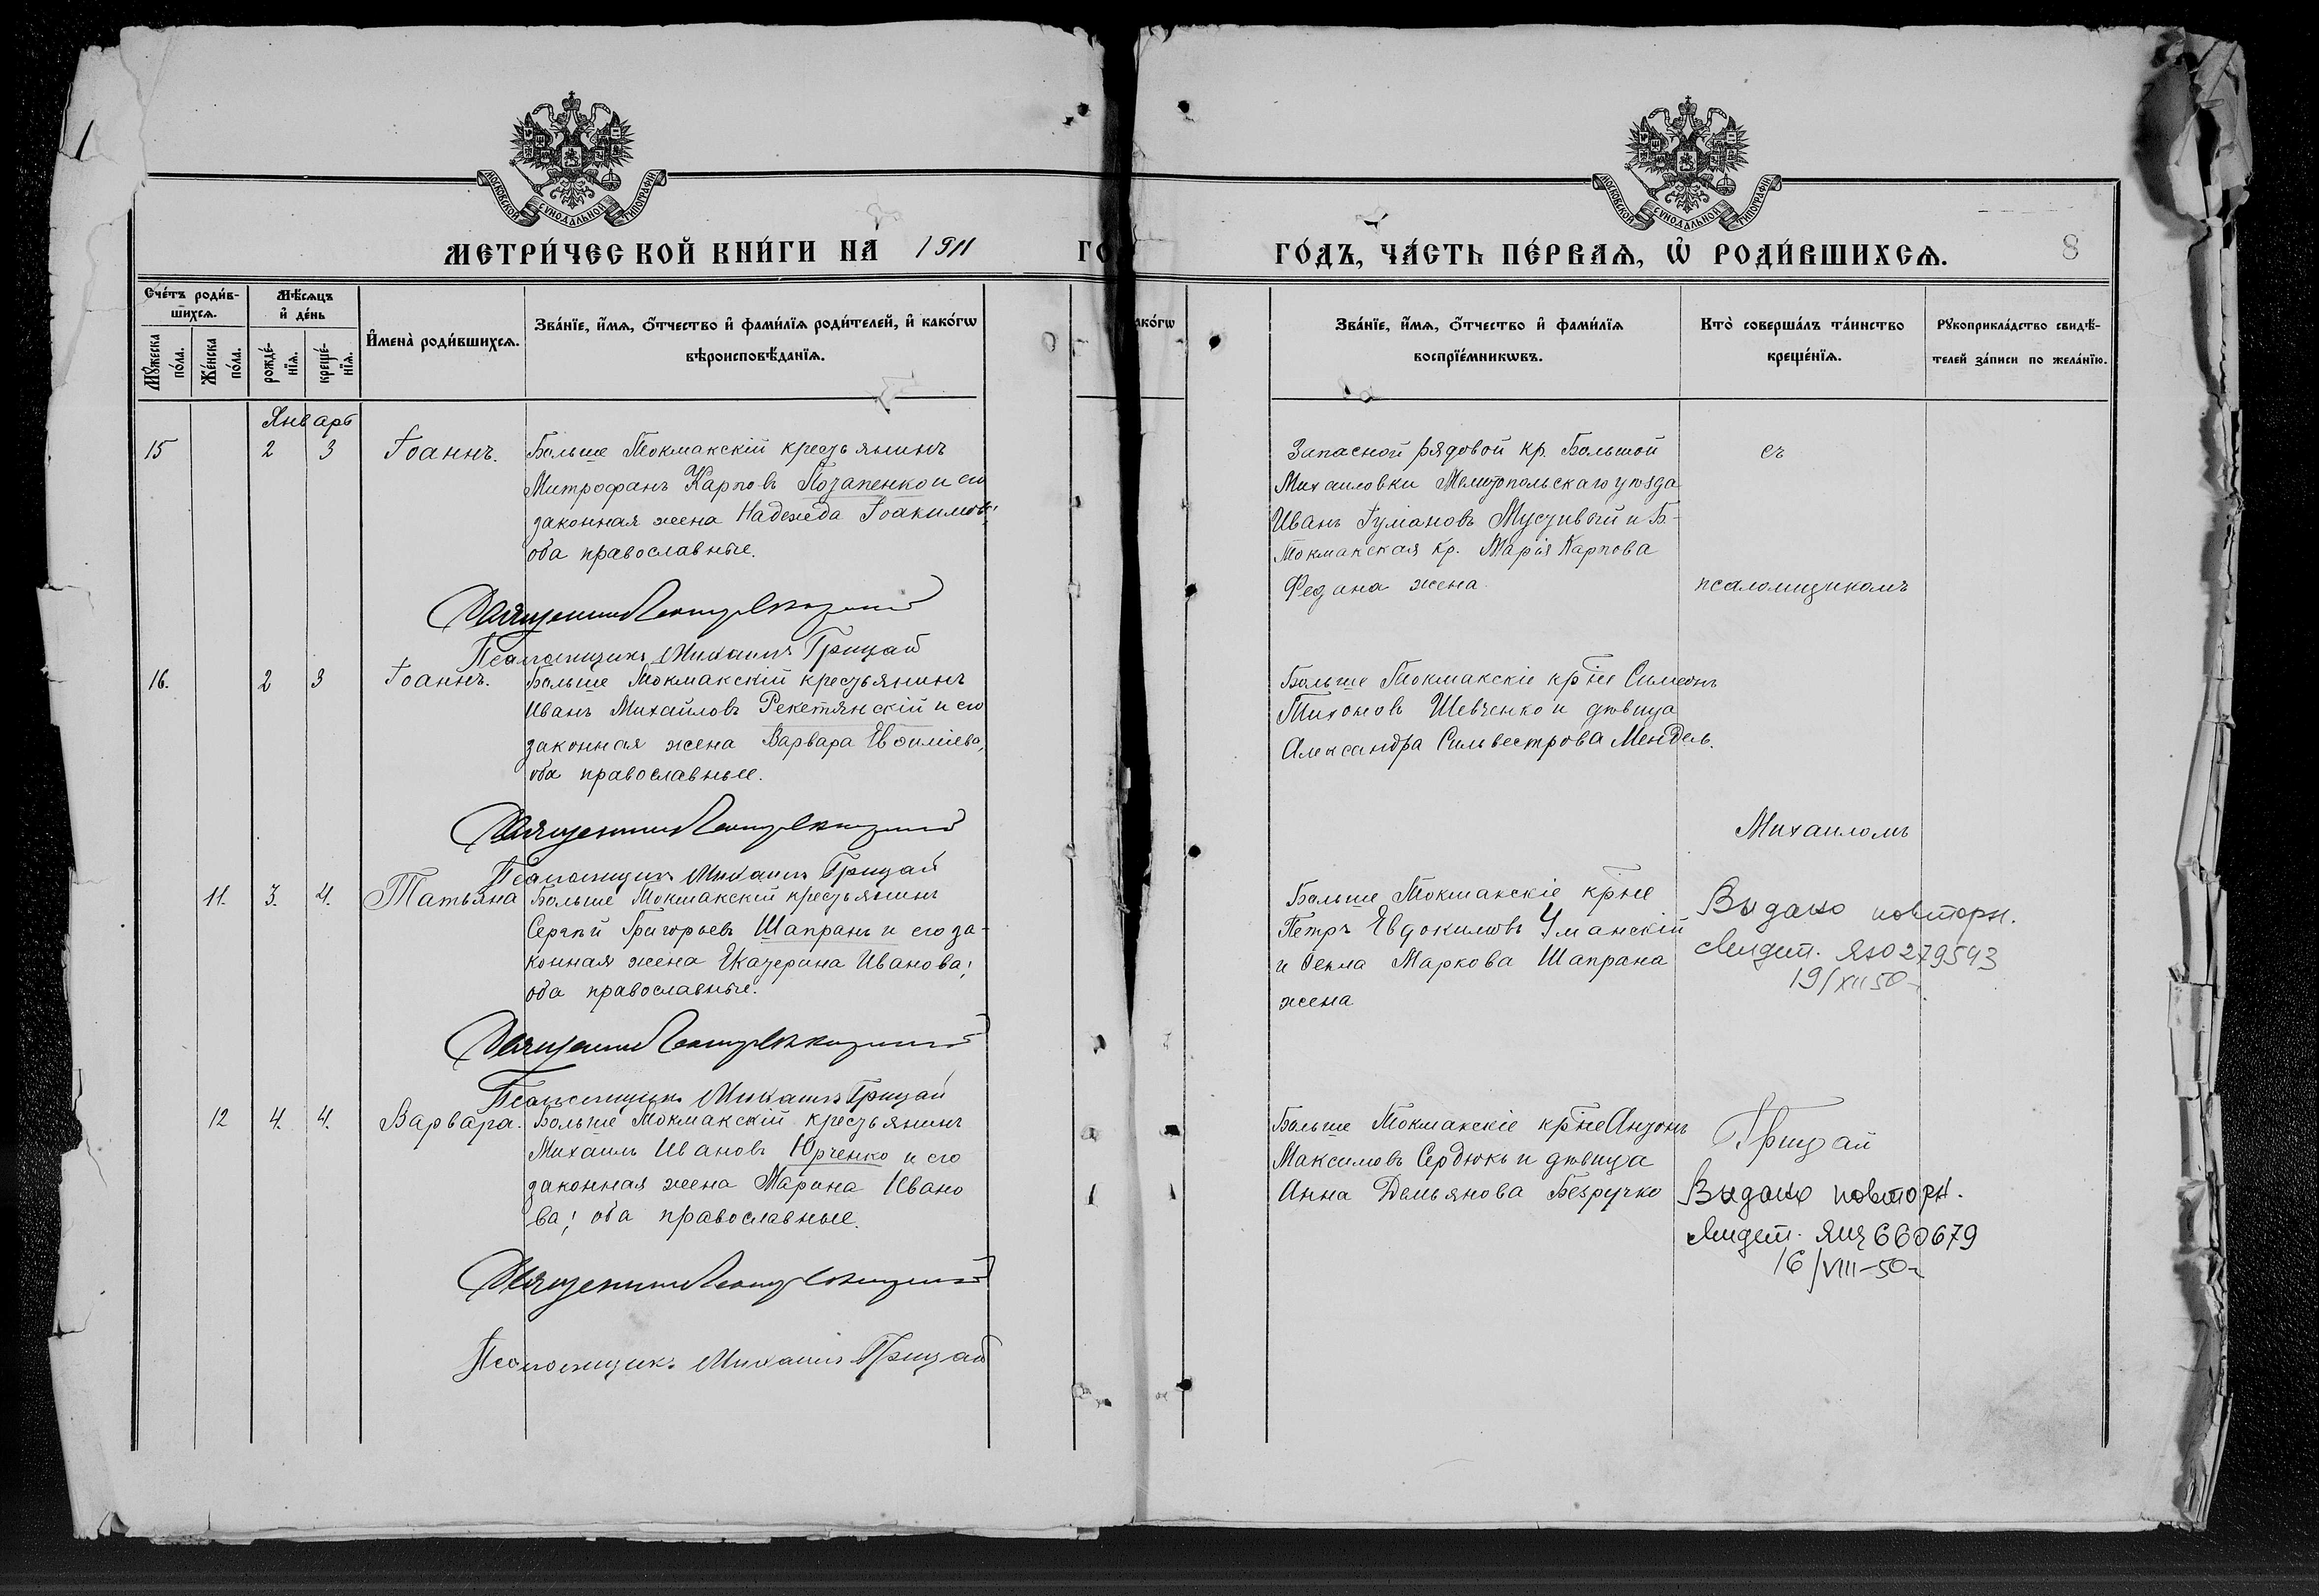 МОСКОВСКОЙ СУНОДАЛЬНОЙ ТИПОГРАФІИ
МЕТРИ́ЧЕСКОЙ КНИ́ГИ НА 1911 ГО
Сче́тъ роди́в-
шихсѧ.
Мѣ́сѧцъ
и҆ де́нь
Мꙋ́жеска
по́ла.
Же́нска
по́ла.
рожде́-
нїѧ.
креще́-
нїѧ.
И҆мена̀ роди́вшихсѧ.
Зва́нїе, и҆́мѧ, ѻ҆́тчество и҆ фами́лїѧ роди́телей, и҆ како́гѡ
вѣроисповѣ́данїѧ.
Январь
15 2 3 Іоаннъ. Больше Токмакскій крестьянинъ
Митрофанъ Карповъ Потапенко и его
законная жена Надежда Іоакимова;
оба православные.
Псаломщикъ Михаилъ Грицай
16. 2 3 Іоаннъ. Больше Токмакскій крестьянинъ
Иванъ Михайловъ Рекетянскій и его
законная жена Варвара
оба православные.
Псаломщикъ Михаилъ Грицай
11. 3. 4. Татьяна Больше Токмакскій крестьянинъ
Сергѣй Григорьевъ Шапранъ и его за-
конная жена Екатерина Иванова;
оба православные.
Псаломщикъ Михаилъ Грицай
12 4. 4. Варвара. Больше Токмакскій крестьянинъ
Михаилъ Ивановъ Юрченко и его
законная жена Марина Ивано
ва; оба православные.
Псаломщикъ Михаилъ Грицай
МОСКОВСКОЙ СУНОДАЛЬНОЙ ТИПОГРАФІИ
ГО́ДЪ, ЧА́СТЬ ПЕ́РВАѦ, Ѡ҆ РОДИ́ВШИХСѦ. 8
ако́гѡ
Зва́нїе, и҆́мѧ, ѻ҆́тчество и҆ фами́лїѧ
воспрїе́мникѡвъ.
Кто̀ соверша́лъ та́инство
креще́нїѧ.
Рꙋкоприкла́дство свидѣ́-
телей за́писи по жела́нїю.
Запасной рядовой кр. Большой съ
Михаиловки Мелитопольскаго уѣзда
Иванъ и Б-
Токмакская кр. Марія Карпова
жена псаломщикомъ
Больше Токмакскіе кр҃не Симеонъ
Тихоновъ Шевченко и дѣвица
Александра Сильвестрова Мендель.
Михаиломъ
Больше Токмакскіе кр҃не
Петръ Евдокимовъ Уманскій
и Ѳекла Маркова Шапрана
жена
Выдано повторн.
свидет. ЯЮ 279543
19/XII 50
Больше Токмакскіе кр҃не Антонъ
Максимовъ Сердюкъ и дѣвица
Анна Демьянова Безручко
Грицай
Выдано повторн.
свидет. 660679
16/VIII-50